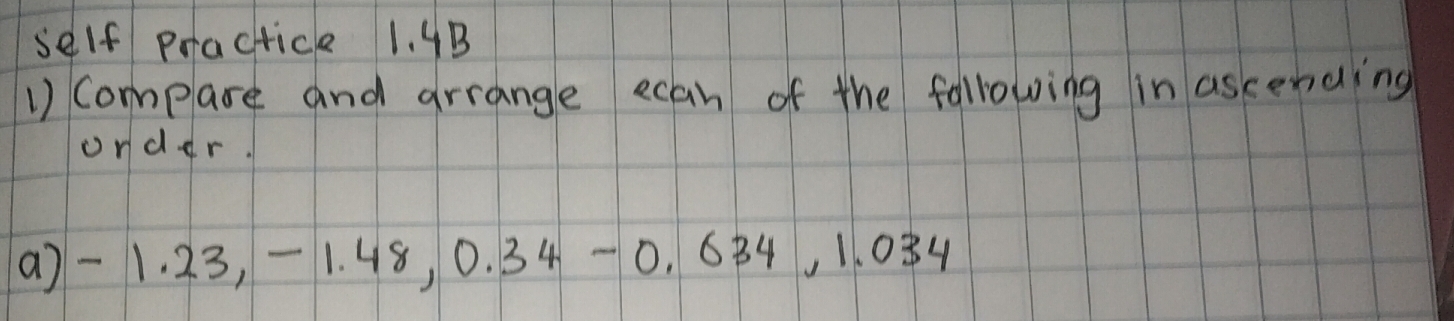 self practice 1.4B
1) Compare and arrange ecah of the following in ascending
order.
a) - 1.23, - 1.48, 0.34 - 0.634, 1.034